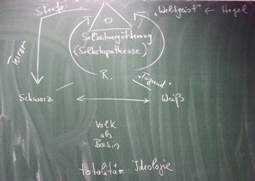 Strafe
"Weltgeist" ← Hegel
Selbstvergötterung
(Selbstapotheose)
Terror
R.
"Tugend"
Schwarz
Weiß
Volk
als
Basis
totalitäre Ideologie